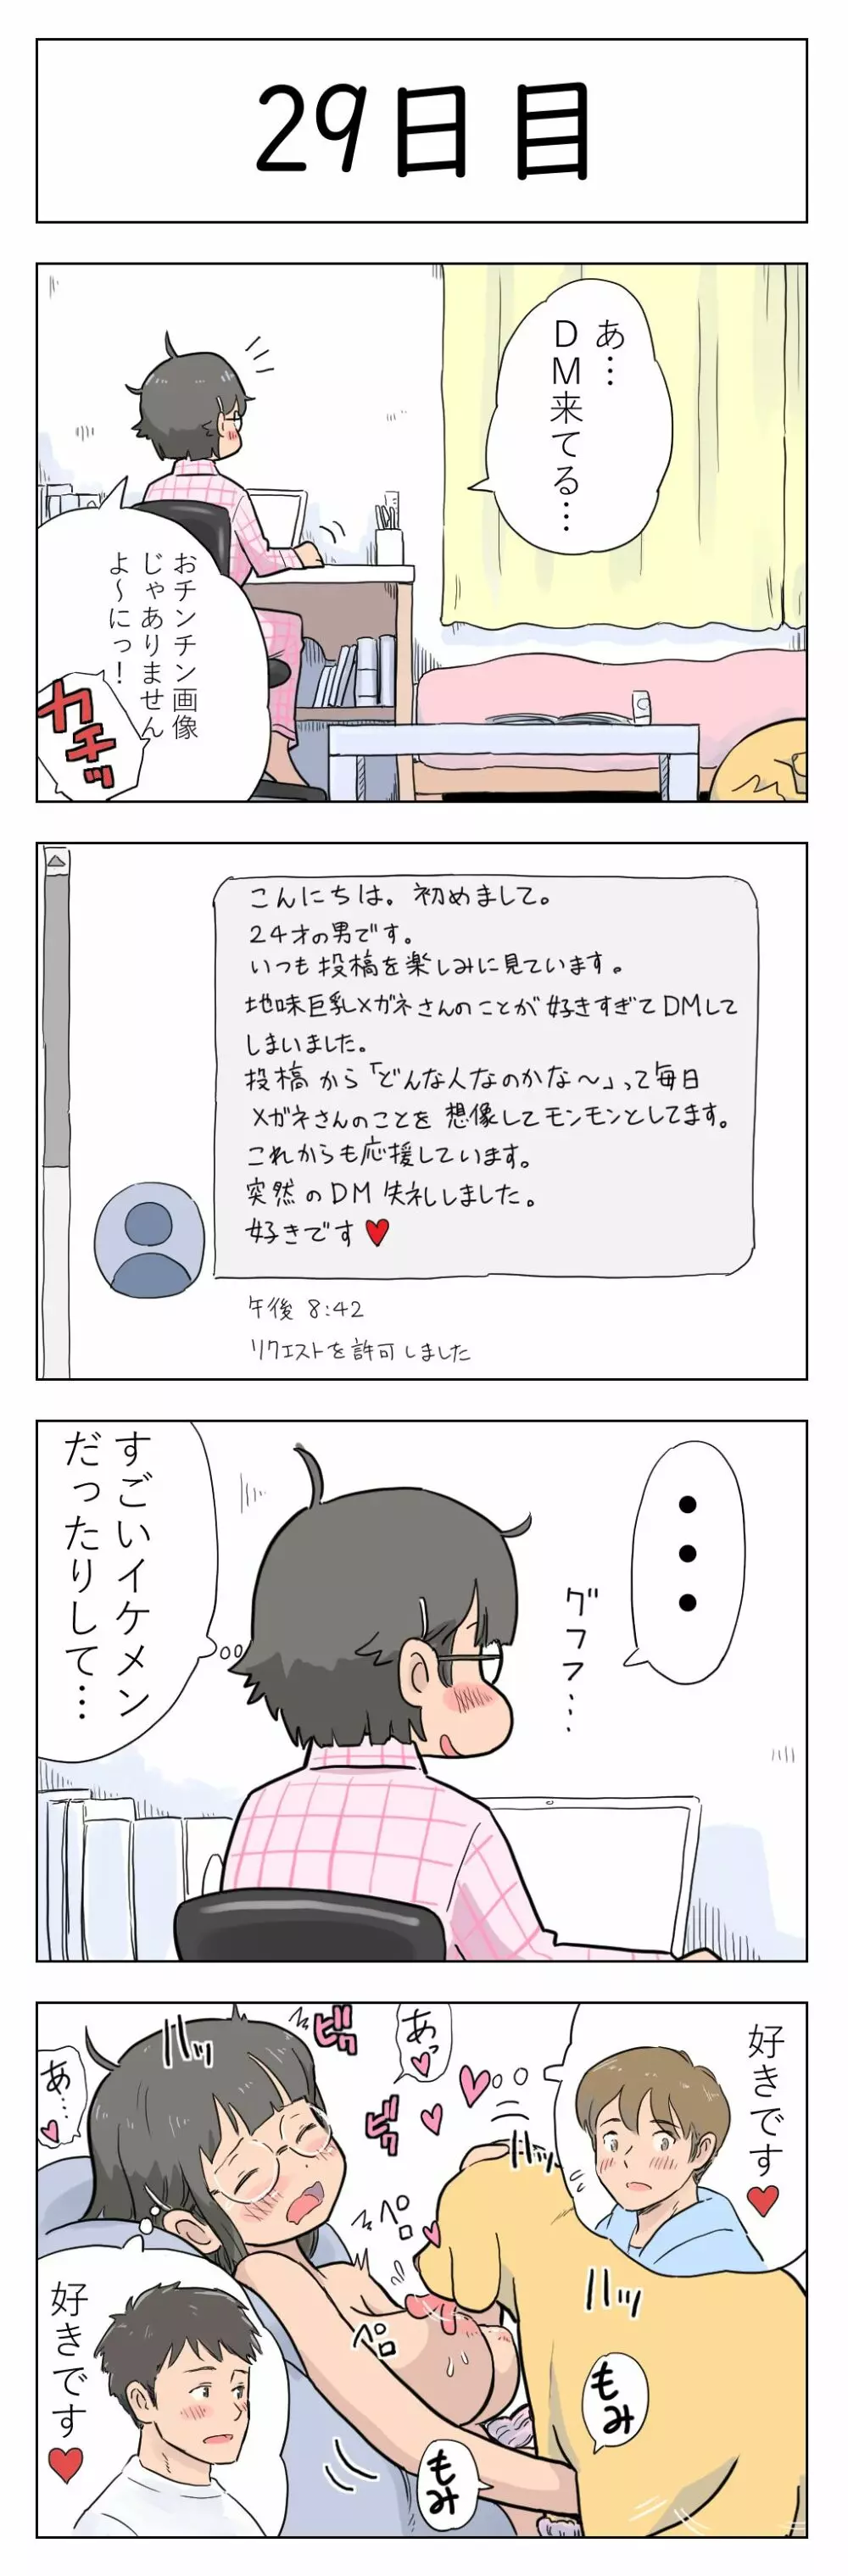 29日目
あ…
DM来てる…
おチンチン画像
じゃありません
よ～にっ！
カチッ
こんにちは。初めまして。
24才の男です。
いつも投稿を楽しみに見ています。
地味巨乳メガネさんのことが好きすぎてDMして
しまいました。
投稿から「どんな人なのかな～」って毎日
メガネさんのことを想像してモンモンとしてます。
これからも応援しています。
突然のDM失礼しました。
好きです♥
午後 8:42
リクエストを許可しました
・・・
グフフ…
すごいイケメン
だったりして…
好きです♥
あっ♥
ビク
ビク
あ…♥
ペロ
ペロ
もみ
もみ
好きです♥